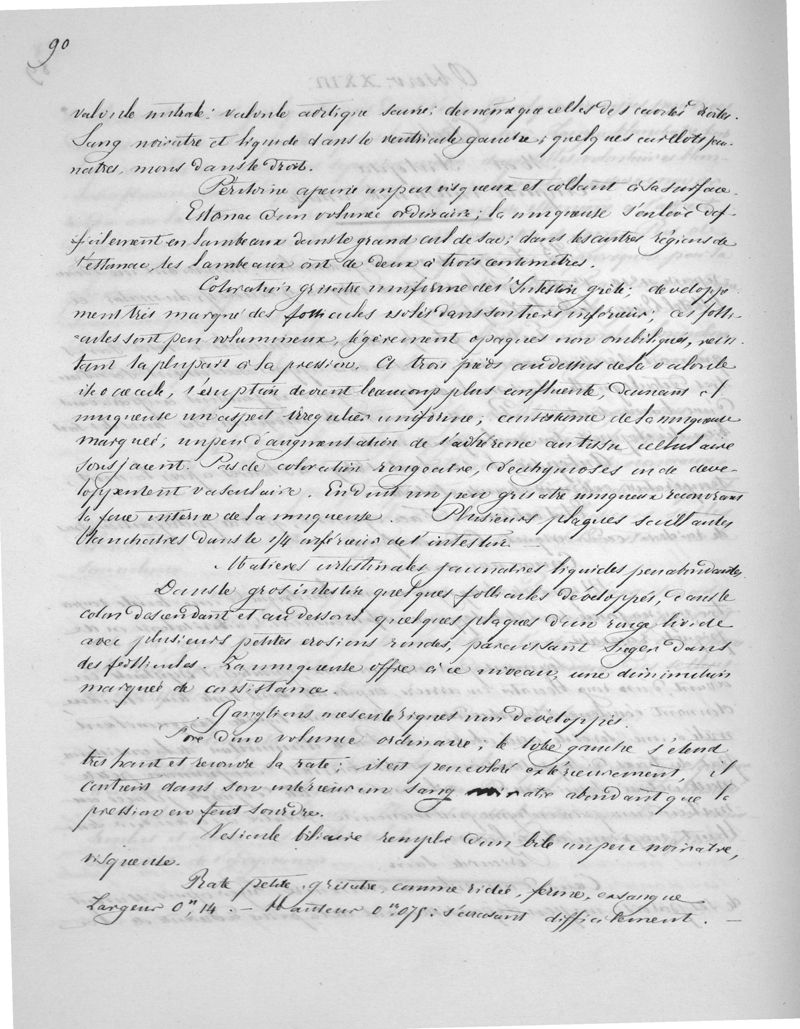 90
valvule mitrale; valvule aortique saine; de même que celles des cavités droites.
Sang noirâtre et liquide dans le ventricule gauche; quelques caillots jau-
nâtres, mous dans le droit.
Péritoine à peine un peu visqueux et collant à la surface.
Estomac d'un volume ordinaire; la muqueuse s'enlève dif-
ficilement en lambeaux dans le grand cul de sac; dans les autres régions de
l'estomac, les lambeaux ont de deux à trois centimètres.
Coloration grisâtre uniforme de l'Intestin grêle; développe-
ment très marqué des follicules isolés dans son tiers inférieur; ces folli-
cules sont peu volumineux, légèrement opaques non ombiliqués, résis-
tant la plupart à la pression. A trois pieds au dessus de la valvule
iléo cœcale, l'éruption devient beaucoup plus confluente, donnant à l
muqueuse un aspect irrégulier uniforme; consistance de la muqueuse
marquée; un peu d'augmentation de l'adhérence au tissu cellulaire
sousjacent. Pas de coloration rougeâtre, d'ecchymoses ni de deve-
loppement vasculaire. Enduit un peu grisâtre muqueux recouvrant
la face interne de la muqueuse. Plusieurs plaques saillantes
blanchâtres dans le 1/4 inférieur de l'intestin. —
Matières intestinales jaunâtres liquides peu abondantes.
Dans le gros intestin quelques follicules développés, dans le
colon descendant et au dessous quelques plaques d'un rouge livide
avec plusieurs petites erosions rondes, paraissant siéger dans
des follicules. La muqueuse offre à ce niveau, une diminution
marquée de consistance.
Ganglions mesentériques non développés.
Foie d'un volume ordinaire; le lobe gauche s'étend
très haut et recouvre la rate; il est peu coloré extérieurement, il
contient dans son intérieur un sang noirâtre abondant que la
pression en fait sourdre.
Vésicule biliaire remplie d'un bile un peu noirâtre,
visqueuse.
Rate petite, grisâtre, comme ridée, ferme, exsangue
Largeur 0m,14. — Hauteur 0m075: s'écrasant difficilement. —